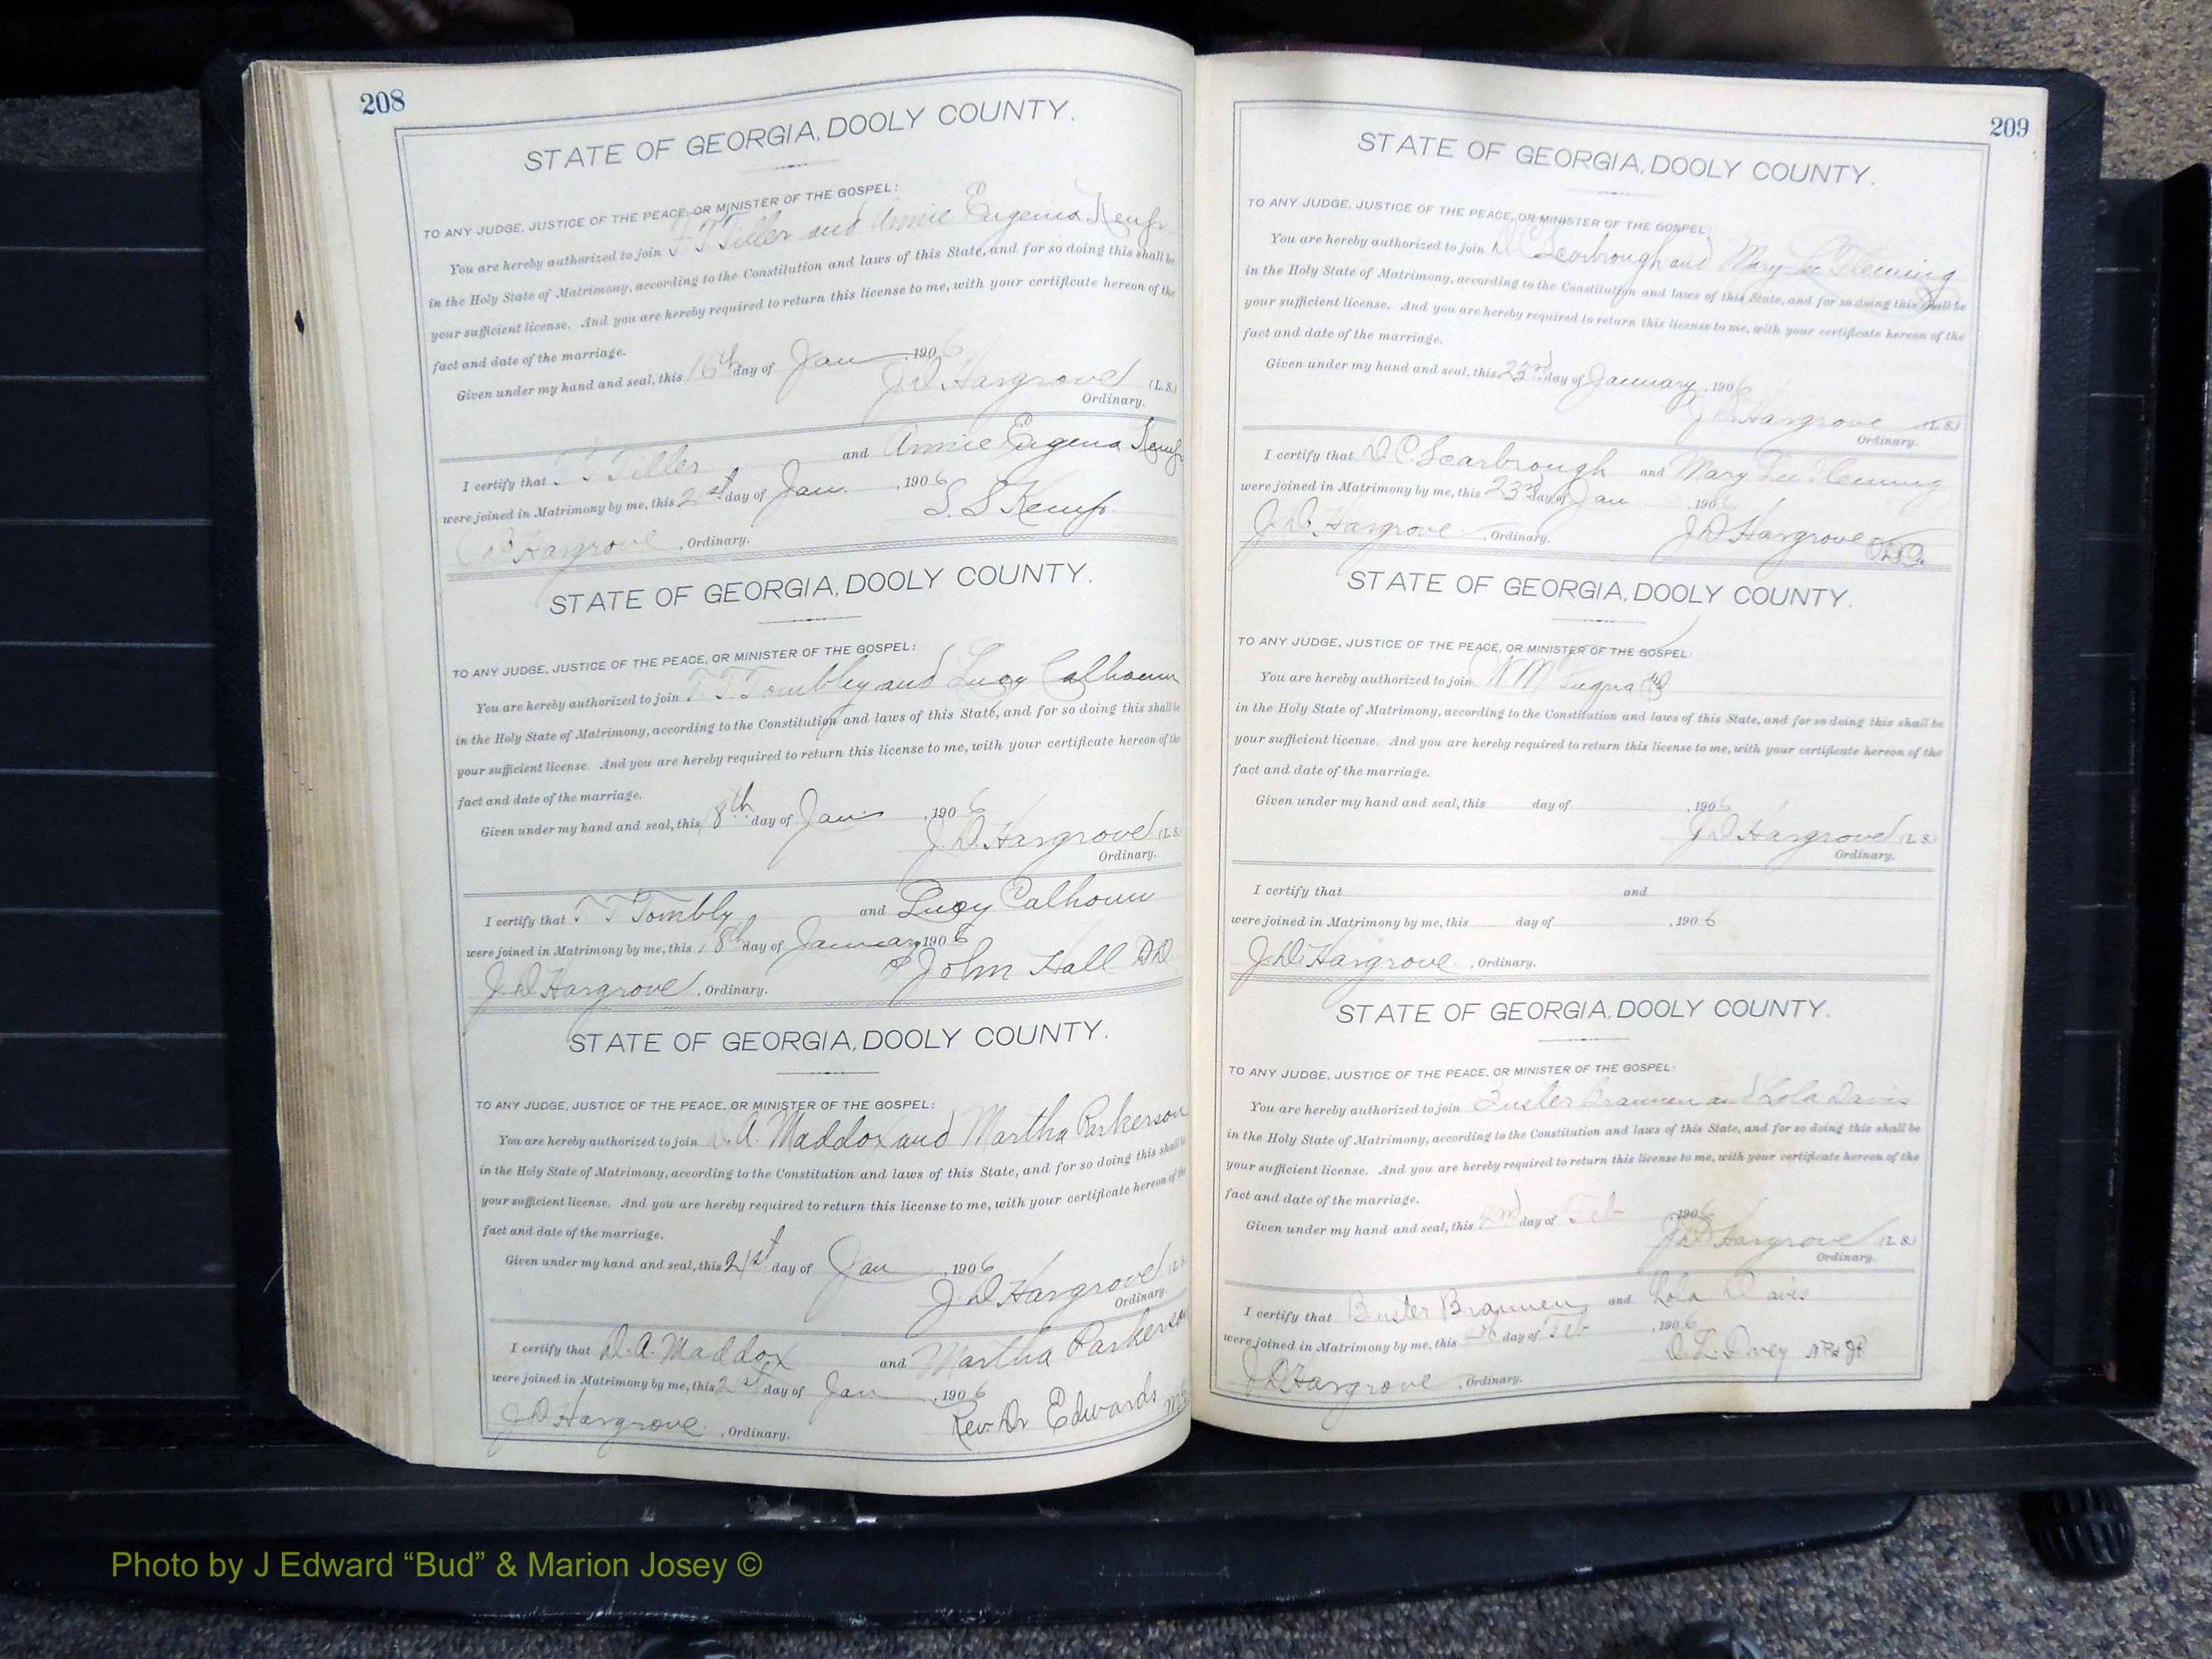 208
STATE OF GEORGIA, DOOLY COUNTY.
TO ANY JUDGE, JUSTICE OF THE PEACE, OR MINISTER OF THE GOSPEL:
You are hereby authorized to join Tiller and Annie Eugenia Kemp
in the Holy State of Matrimony, according to the Constitution and laws of this State, and for so doing this shall be
your sufficient license. And you are hereby required to return this license to me, with your certificate hereon of the
fact and date of the marriage.
Given under my hand and seal, this 16th day of Jan, 1906
J. D. Hargrove (L.S.)
Ordinary.
I certify that Tiller and Annie Eugenia Kemp
were joined in Matrimony by me, this 21st day of Jan., 1906
S. S Kemp.
Hargrove, Ordinary.
STATE OF GEORGIA, DOOLY COUNTY.
TO ANY JUDGE, JUSTICE OF THE PEACE, OR MINISTER OF THE GOSPEL:
You are hereby authorized to join T. T. Tombley and Lucy Calhoun
in the Holy State of Matrimony, according to the Constitution and laws of this State, and for so doing this shall be
your sufficient license. And you are hereby required to return this license to me, with your certificate hereon of the
fact and date of the marriage.
Given under my hand and seal, this 18th day of Jan, 1906
J. D. Hargrove (L.S.)
Ordinary.
I certify that T. T Tombly and Lucy Calhoun
were joined in Matrimony by me, this 18th day of January 1906
John Hall DD
J. D. Hargrove, Ordinary.
STATE OF GEORGIA, DOOLY COUNTY.
TO ANY JUDGE, JUSTICE OF THE PEACE, OR MINISTER OF THE GOSPEL:
You are hereby authorized to join D. A. Maddox and Martha Parkerson
in the Holy State of Matrimony, according to the Constitution and laws of this State, and for so doing this shall be
your sufficient license. And you are hereby required to return this license to me, with your certificate hereon of the
fact and date of the marriage.
Given under my hand and seal, this 21st day of Jan, 1906
J. D. Hargrove L.S.
Ordinary
I certify that D. A. Maddox and Martha Parkerson
were joined in Matrimony by me, this 21st day of Jan, 1906
Rev. Dr Edwards
J. D. Hargrove, Ordinary.
209
STATE OF GEORGIA, DOOLY COUNTY.
TO ANY JUDGE, JUSTICE OF THE PEACE, OR MINISTER OF THE GOSPEL:
You are hereby authorized to join D C Scarbrough and Mary Lee Fleming
in the Holy State of Matrimony, according to the Constitution and laws of this State, and for so doing this shall be
your sufficient license. And you are hereby required to return this license to me, with your certificate hereon of the
fact and date of the marriage.
Given under my hand and seal, this 23rd day of January, 1906
J. D. Hargrove (L.S.)
Ordinary.
I certify that D. C. Scarbrough and Mary Lee Fleming
were joined in Matrimony by me, this 23rd day of Jan, 1906
J. D. Hargrove
J. D. Hargrove, Ordinary.
STATE OF GEORGIA, DOOLY COUNTY.
TO ANY JUDGE, JUSTICE OF THE PEACE, OR MINISTER OF THE GOSPEL:
You are hereby authorized to join W M
in the Holy State of Matrimony, according to the Constitution and laws of this State, and for so doing this shall be
your sufficient license. And you are hereby required to return this license to me, with your certificate hereon of the
fact and date of the marriage.
Given under my hand and seal, this day of, 1906
J. D. Hargrove (L.S.)
Ordinary.
I certify that and
were joined in Matrimony by me, this day of, 1906
J. D. Hargrove, Ordinary.
STATE OF GEORGIA, DOOLY COUNTY.
TO ANY JUDGE, JUSTICE OF THE PEACE, OR MINISTER OF THE GOSPEL:
You are hereby authorized to join Buster Brannen and Lola Davis
in the Holy State of Matrimony, according to the Constitution and laws of this State, and for so doing this shall be
your sufficient license. And you are hereby required to return this license to me, with your certificate hereon of the
fact and date of the marriage.
Given under my hand and seal, this 2nd day of Feb, 1906
J. D. Hargrove (L.S.)
Ordinary.
I certify that Buster Brannen and Lola Davis
were joined in Matrimony by me, this day of Feb, 1906
J. D. Hargrove, Ordinary.
Photo by J Edward “Bud” & Marion Josey ©